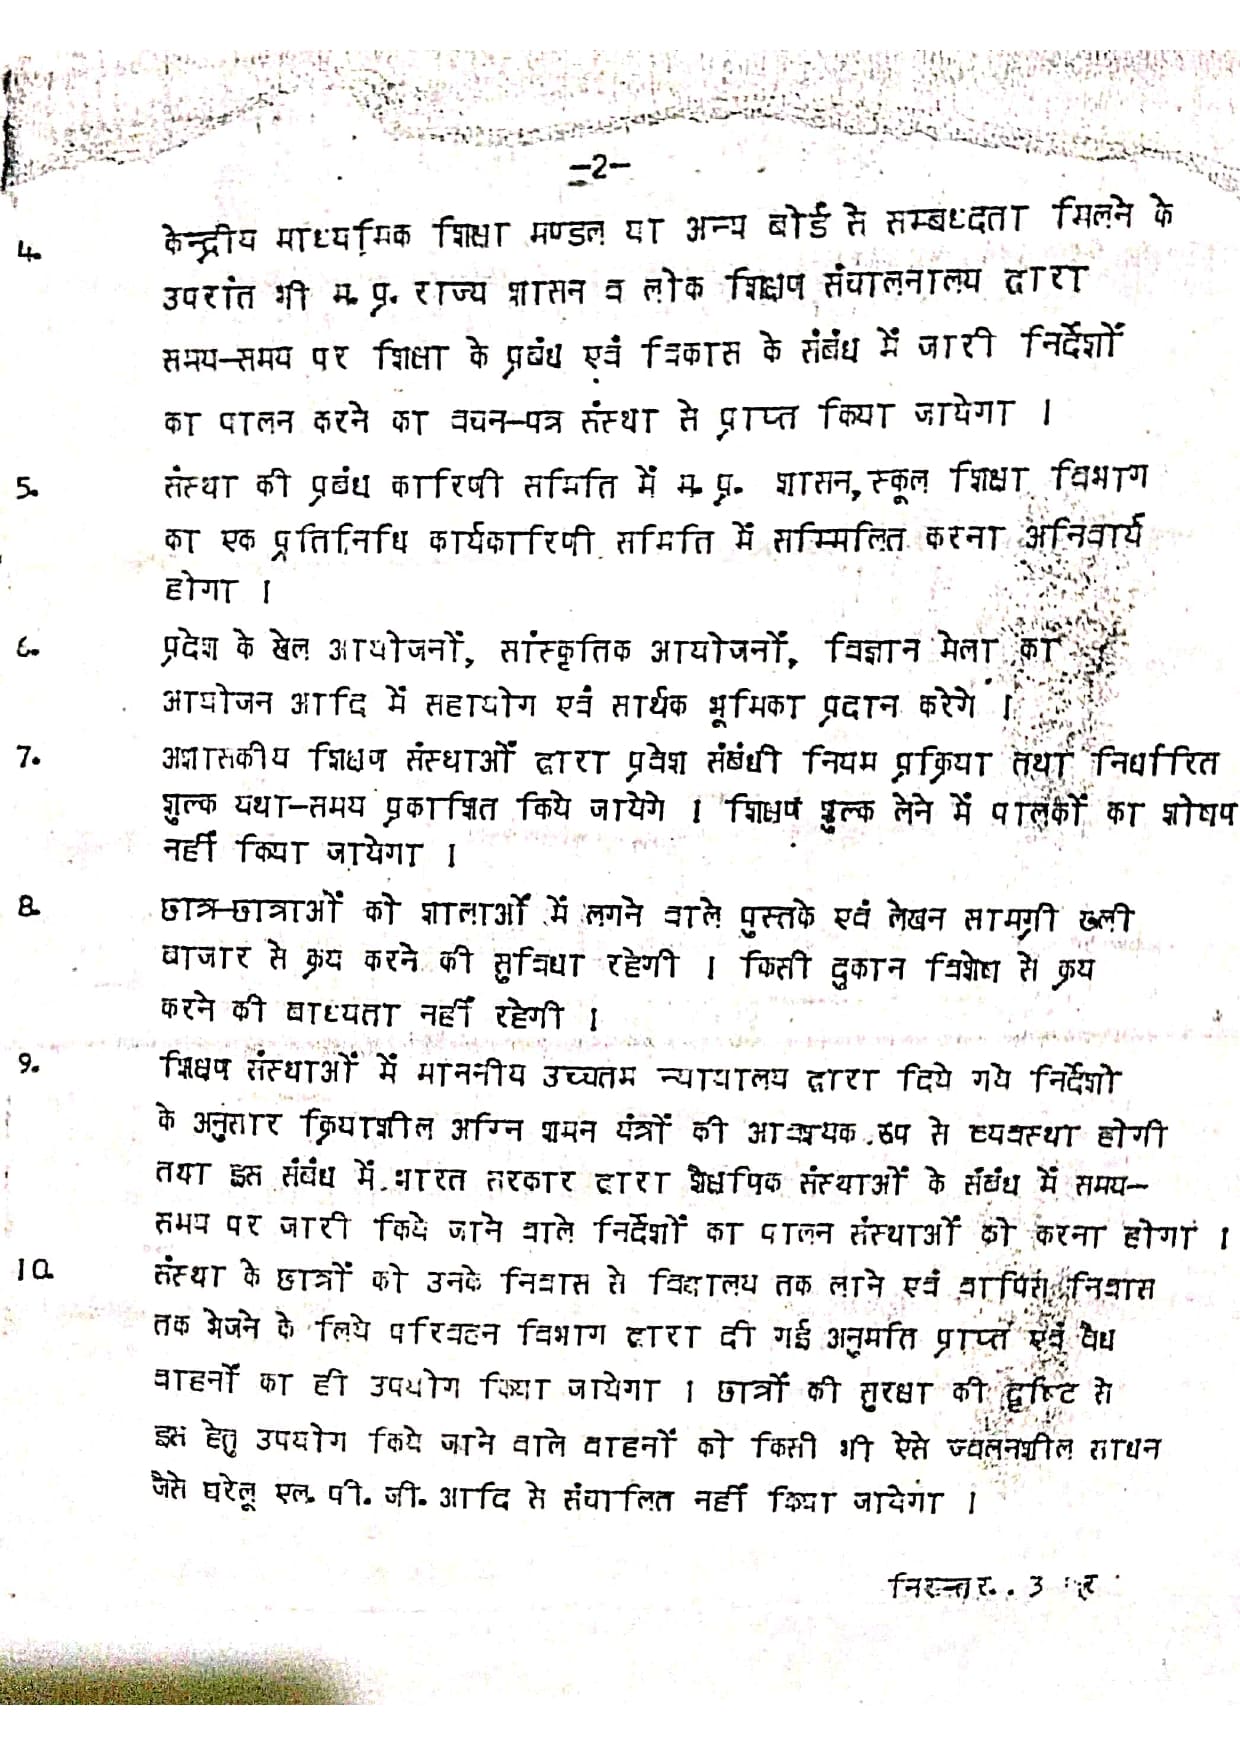 -2-
4. केन्द्रीय माध्यमिक शिक्षा मण्डल या अन्य बोर्ड से सम्बध्दता मिलने के
उपरांत भी म.प्र. राज्य शासन व लोक शिक्षण संचालनालय द्वारा
समय-समय पर शिक्षा के प्रबंध एवं विकास के संबंध में जारी निर्देशों
का पालन करने का वचन-पत्र संस्था से प्राप्त किया जायेगा ।
5. संस्था की प्रबंध कारिणी समिति में म.प्र. शासन, स्कूल शिक्षा विभाग
का एक प्रतिनिधि कार्यकारिणी समिति में सम्मिलित करना अनिवार्य
होगा ।
6. प्रदेश के खेल आयोजनों, सांस्कृतिक आयोजनों, विज्ञान मेला का
आयोजन आदि में सहायोग एवं सार्थक भूमिका प्रदान करेगे ।
7. अशासकीय शिक्षण संस्थाओं द्वारा प्रवेश संबंधी नियम प्रक्रिया तथा निर्धारित
शुल्क यथा-समय प्रकाशित किये जायेगे । शिक्षण शुल्क लेने में पालकों का शोषण
नहीं किया जायेगा ।
8. छात्र-छात्राओं को शालाओं में लगने वाले पुस्तके एवं लेखन सामग्री खुली
बाजार से क्रय करने की सुविधा रहेगी । किसी दुकान विशेष से क्रय
करने की बाध्यता नहीं रहेगी ।
9. शिक्षण संस्थाओं में माननीय उच्चतम न्यायालय द्वारा दिये गये निर्देशो
के अनुसार क्रियाशील अग्नि शमन यंत्रों की आवश्यक रूप से व्यवस्था होगी
तथा इस संबंध में भारत सरकार द्वारा शैक्षणिक संस्थाओं के संबंध में समय-
समय पर जारी किये जाने वाले निर्देशों का पालन संस्थाओं को करना होगा ।
10. संस्था के छात्रों को उनके निवास से विद्यालय तक लाने एवं वापिस निवास
तक भेजने के लिये परिवहन विभाग द्वारा दी गई अनुमति प्राप्त एवं वैध
वाहनों का ही उपयोग किया जायेगा । छात्रों की सुरक्षा की दृष्टि से
इस हेतु उपयोग किये जाने वाले वाहनों को किसी भी ऐसे ज्वलनशील साधन
जैसे घरेलू एल. पी. जी. आदि से संचालित नहीं किया जायेगा ।
निरन्तर.. 3 पर